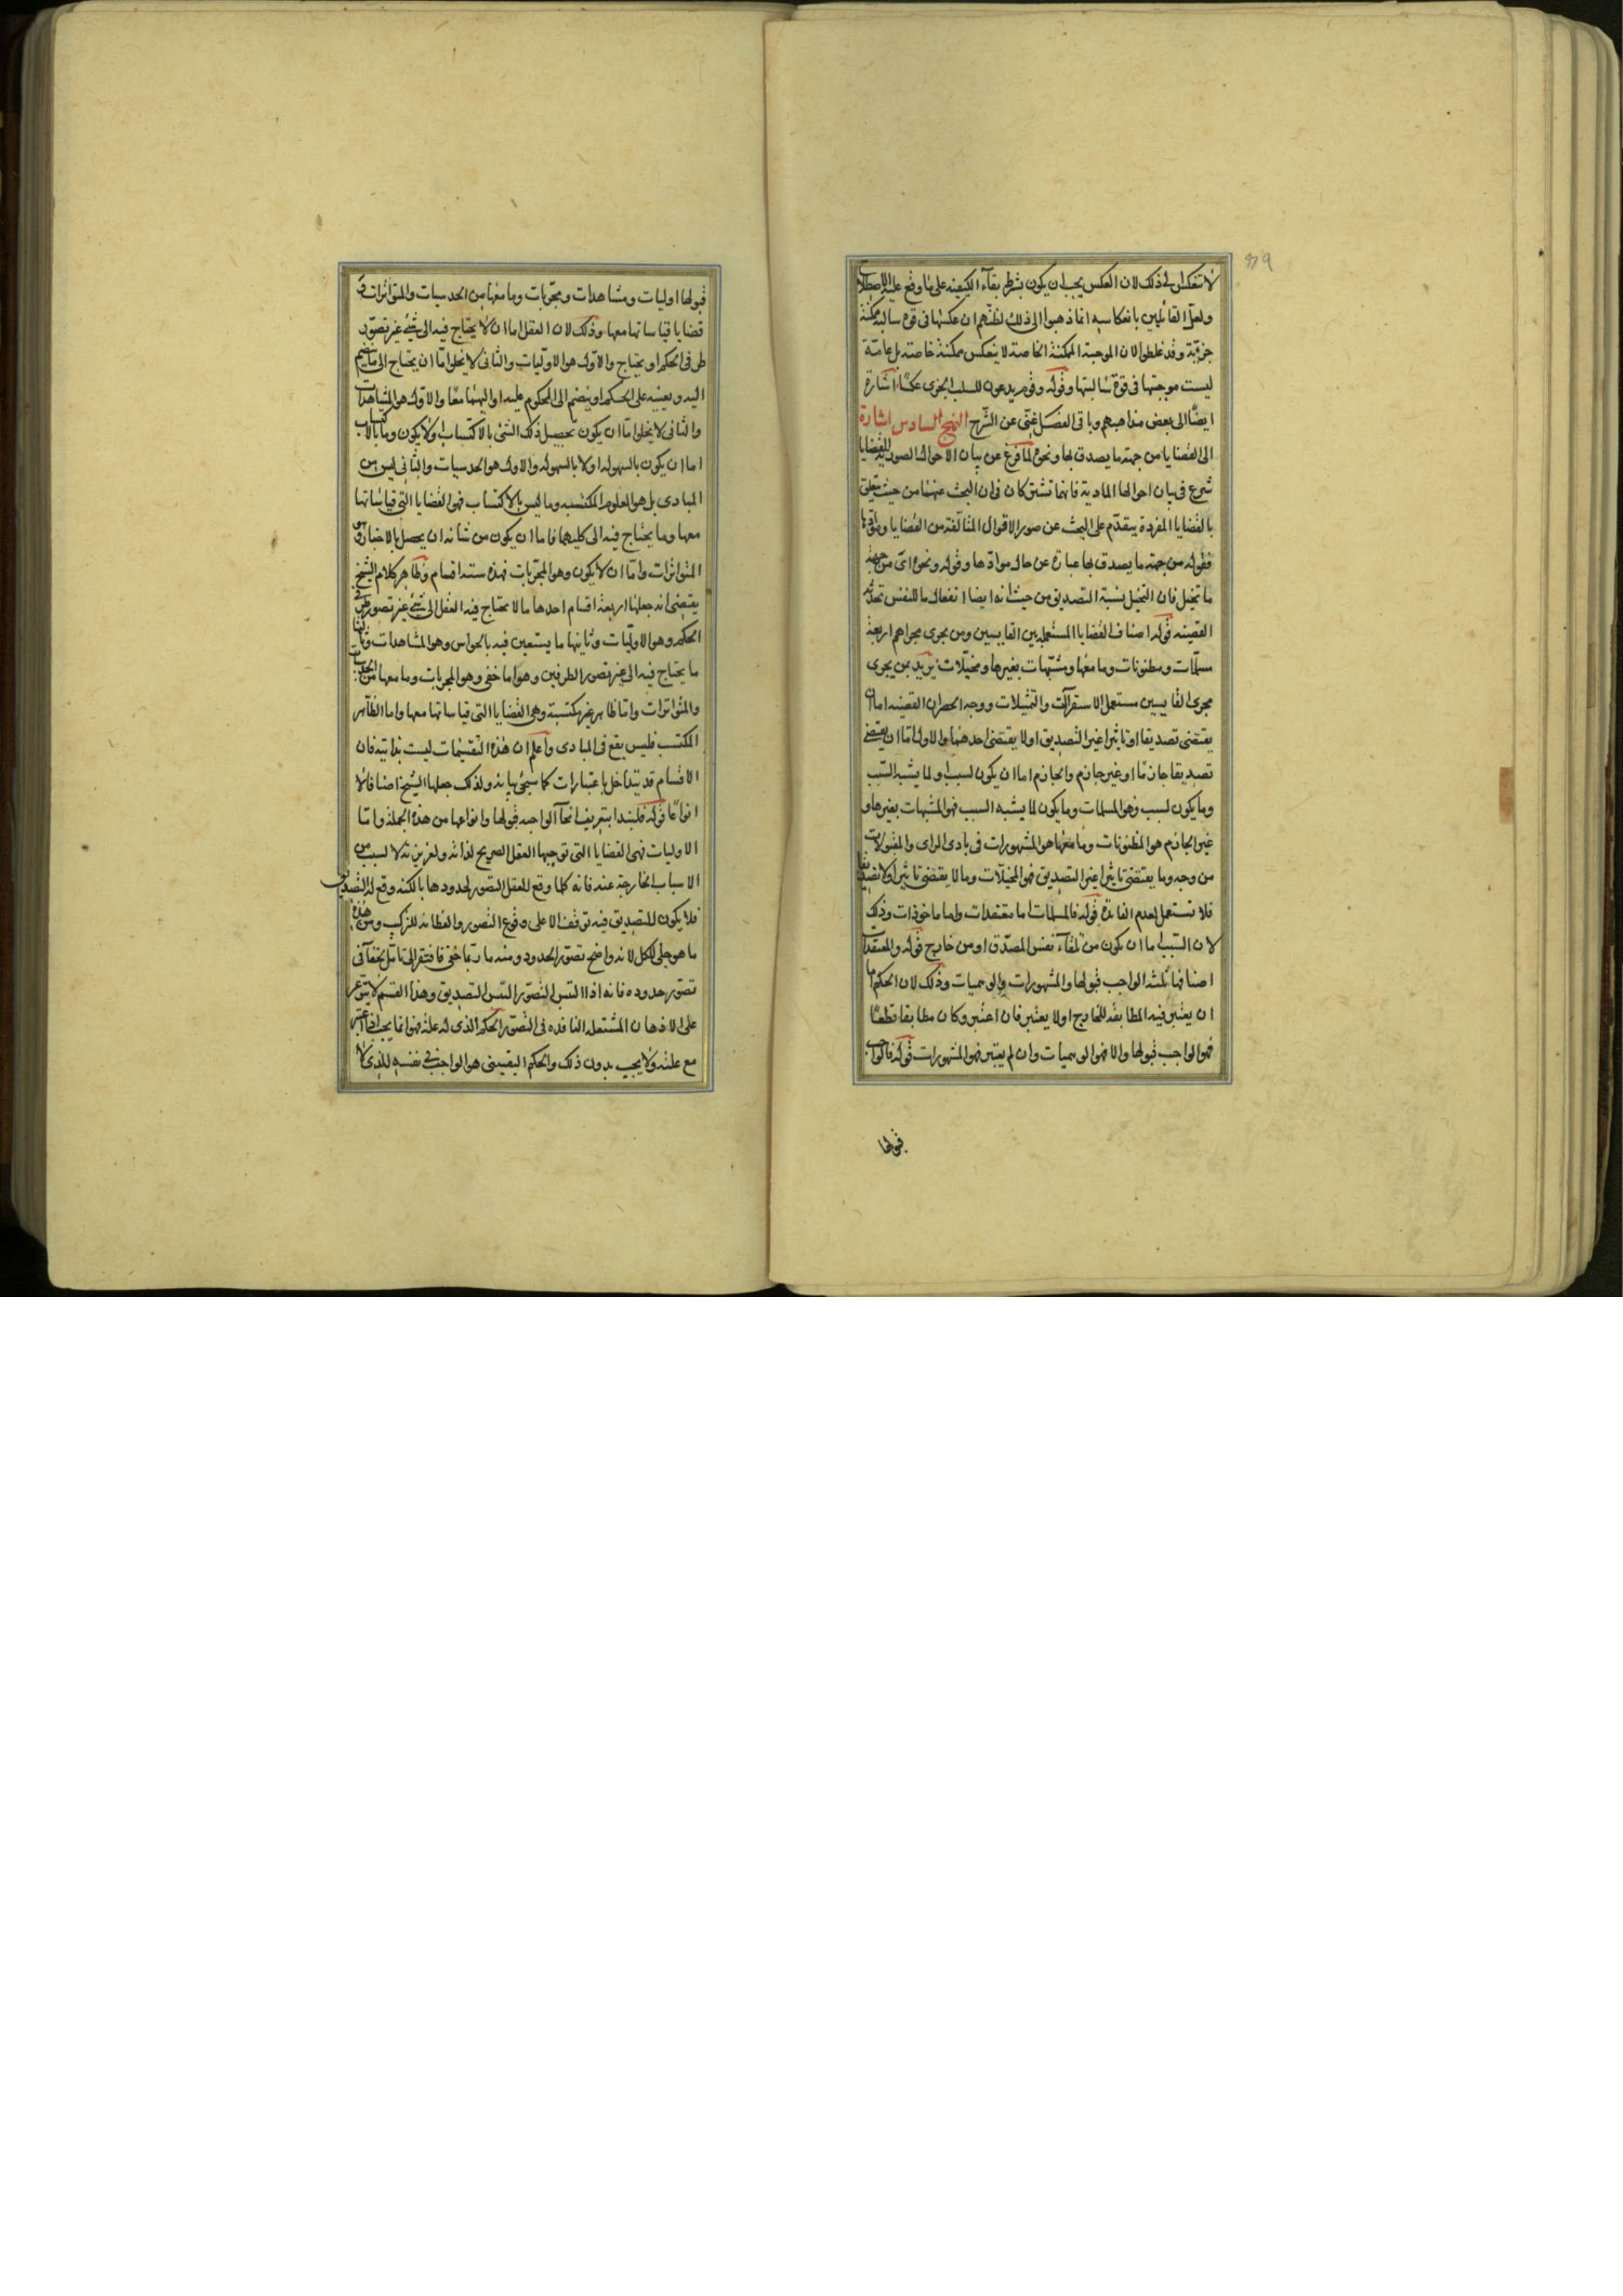 ٣٩
لا تنعكس لذلك لان العكس يجب ان يكون بشرط بقاء الكيفية على ما وقع عليه الاصطلاح
ولعل القائلين بانعكاسه انما ذهبوا الى ذلك لظنهم ان عكسها فى قوة سالبة ممكنة
جزئية وقد غلطوا لان الموجبة الممكنة الخاصة لا ينعكس ممكنة خاصة بل عامة
ليست موجبتها فى قوة سالبتها وقوله وقوم يدعون للسلب الجزى عكسا اشارة
ايضا الى بعض مذاهبهم وباقى الفصل غنى عن الشرح النهج السادس اشارة
الى القضايا من جهة ما يصدق بها ونحوه لما فرغ عن بيان الاحوال الصورية للقضايا
شرع فى بيان احوالها المادية فانها تشترك ان فى ان البحث عنهما من حيث يتعلق
بالقضايا المفردة يتقدم على البحث عن صور الاقوال المتالفة من القضايا وموادها
فقوله من جهة ما يصدق بها عبارة عن حال موادها وقوله ونحوه اى من جهة
ما تخيل فان التخيل يشبه التصديق من حيث انه ايضا انفعال ما للنفس تحدثه
القضية قوله اصناف القضايا المستعملة بين القايسين ومن يجرى مجراهم اربعة
مسلمات ومظنونات وما معها ومشبهات بغيرها ومخيلات يريد بمن يجرى
مجرى القايسين مستعملى الاستقراآت والتمثيلات ووجه الحصر ان القضية اما ان
يقتضى تصديقا او تاثيرا غير التصديق او لا يقتضى احدهما والاول اما ان يقتضى
تصديقا جازما او غير جازم والجازم اما ان يكون لسبب او لما يشبه السبب
وما يكون لسبب فهو المسلمات وما يكون لما يشبه السبب فهو المشبهات بغيرها و
غير الجازم هو المظنونات وما معها هو المشهورات فى بادى الراى والمقبولات
من وجه وما يقتضى تاثيرا غير التصديق فهو المخيلات وما لا يقتضى تاثيرا ولا تصديقا
فلا تستعمل لعدم الفائدة قوله فالمسلمات اما معتقدات واما ماخوذات وذلك
لان السبب اما ان يكون من تلقاء نفس المصدق او من خارج قوله والمعتقدات
اصنافها ثلثة الواجب قبولها والمشهورات والوهميات وذلك لان الحكم اما
ان يعتبر فيه المطابقة للخارج او لا يعتبر فان اعتبر وكان مطابقا قطعا
فهو الواجب قبولها والا فهو الوهميات وان لم يعتبر فهو المشهورات قوله فالواجب
قبولها
قبولها اوليات ومشاهدات ومجربات وما معها من الحدسيات والمتواترات و
قضايا قياساتها معها وذلك لان العقل اما ان لا يحتاج فيه الى شىء غير تصور
طرفى الحكم او يحتاج والاول هو الاوليات والثانى لا يخلوا اما ان يحتاج الى ما ينضم
اليه ويعينه على الحكم او ينضم الى المحكوم عليه او اليهما معا والاول هو المشاهدات
والثانى لا يخلوا اما ان يكون تحصيل ذلك الشىء بالاكتساب او لا يكون وما بالاكتساب
اما ان يكون بالسهولة او لا بالسهولة والاول هو الحدسيات والثانى ليس من
المبادى بل هو العلوم المكتسبه وما ليس بالاكتساب فهو القضايا التى قياساتها
معها وما يحتاج فيه الى كليهما فاما ان يكون من شانه ان يحصل بالاخبار وهو
المتواترات واما ان لا يكون وهو المجربات فهذه ستة اقسام وظاهر كلام الشيخ
يقتضى انه جعلها اربعة اقسام احدها ما لا يحتاج فيه العقل الى شىء غير تصور طرفى
الحكم وهو الاوليات وثانيها ما يستعين فيه بالحواس وهو المشاهدات وثالثها
ما يحتاج فيه الى غير تصور الطرفين وهو اما خفى وهو المجربات وما معها من الحدسيات
والمتواترات واما ظاهر غير مكتسبة وهى القضايا التى قياساتها معها واما الظاهر
المكتسب فليس يقع فى المبادى واعلم ان هذه التقسيمات ليست بذاتية فان
الاقسام قد يتداخل باعتبارات كما سيجئ بيانه ولذلك جعلها الشيخ اصنافا لا
انواعا قوله فلنبدا بتعريف انحآ الواجبة قبولها وانواعها من هذه الجملة واما
الاوليات فهى القضايا التى توجبها العقل الصريح لذاته ولغريزته لا لسبب من
الاسباب الخارجة عنه فانه كلما وقع للعقل التصور لحدودها بالكنه وقع له التصديق
فلا يكون للتصديق فيه توقف الا على وقوع التصور والفطانة للتركيب ومن هذه
ما هو جلى للكل لانه واضح تصور الحدود ومنه ما ربما خفى فافتقر الى تامل لخفآ فى
تصور حدوده فانه اذا التبس التصور التبس التصديق وهذا القسم لا يتوعر
على الاذهان المشتعلة النافذه فى التصور الحكم الذى له علة فهو انما يجب اذا اعتبر
مع علته ولا يجب بدون ذلك والحكم اليقينى هو الواجب فى نفسه للذى لا